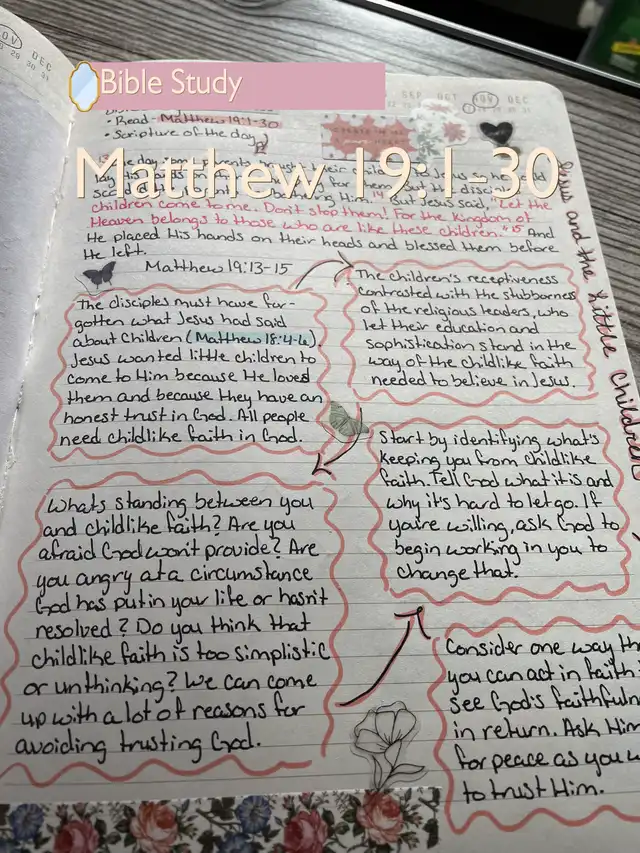 Bible Study
Matthew 19:1-30
OV DEC
SEP OCT NOV DEC
• Read - Matthew 19:1-30
• Scripture of the day
children come to me. Don't stop them! For the Kingdom of
Heaven belongs to those who are like these children." 15 And
He placed His hands on their heads and blessed them before
He left.
Matthew 19:13-15
Jesus and the little children
The disciples must have for-
gotten what Jesus had said
about children (Matthew 18:4-6).
Jesus wanted little children to
come to Him because He loved
them and because they have an
honest trust in God. All people
need childlike faith in God.
The children's receptiveness
contrasted with the stubborness
of the religious leaders, who
let their education and
sophistication stand in the
way of the childlike faith
needed to believe in Jesus.
Whats standing between you
and childlike faith? Are you
afraid God won't provide? Are
you angry at a circumstance
God has put in your life or hasn't
resolved? Do you think that
childlike faith is too simplistic
or unthinking? We can come
up with a lot of reasons for
avoiding trusting God.
Start by identifying what's
keeping you from childlike
faith. Tell God what it is and
why it's hard to let go. If
you're willing, ask God to
begin working in you to
change that.
Consider one way
you can act in faith
see God's
in return. Ask Him
for peace as you
to trust Him.